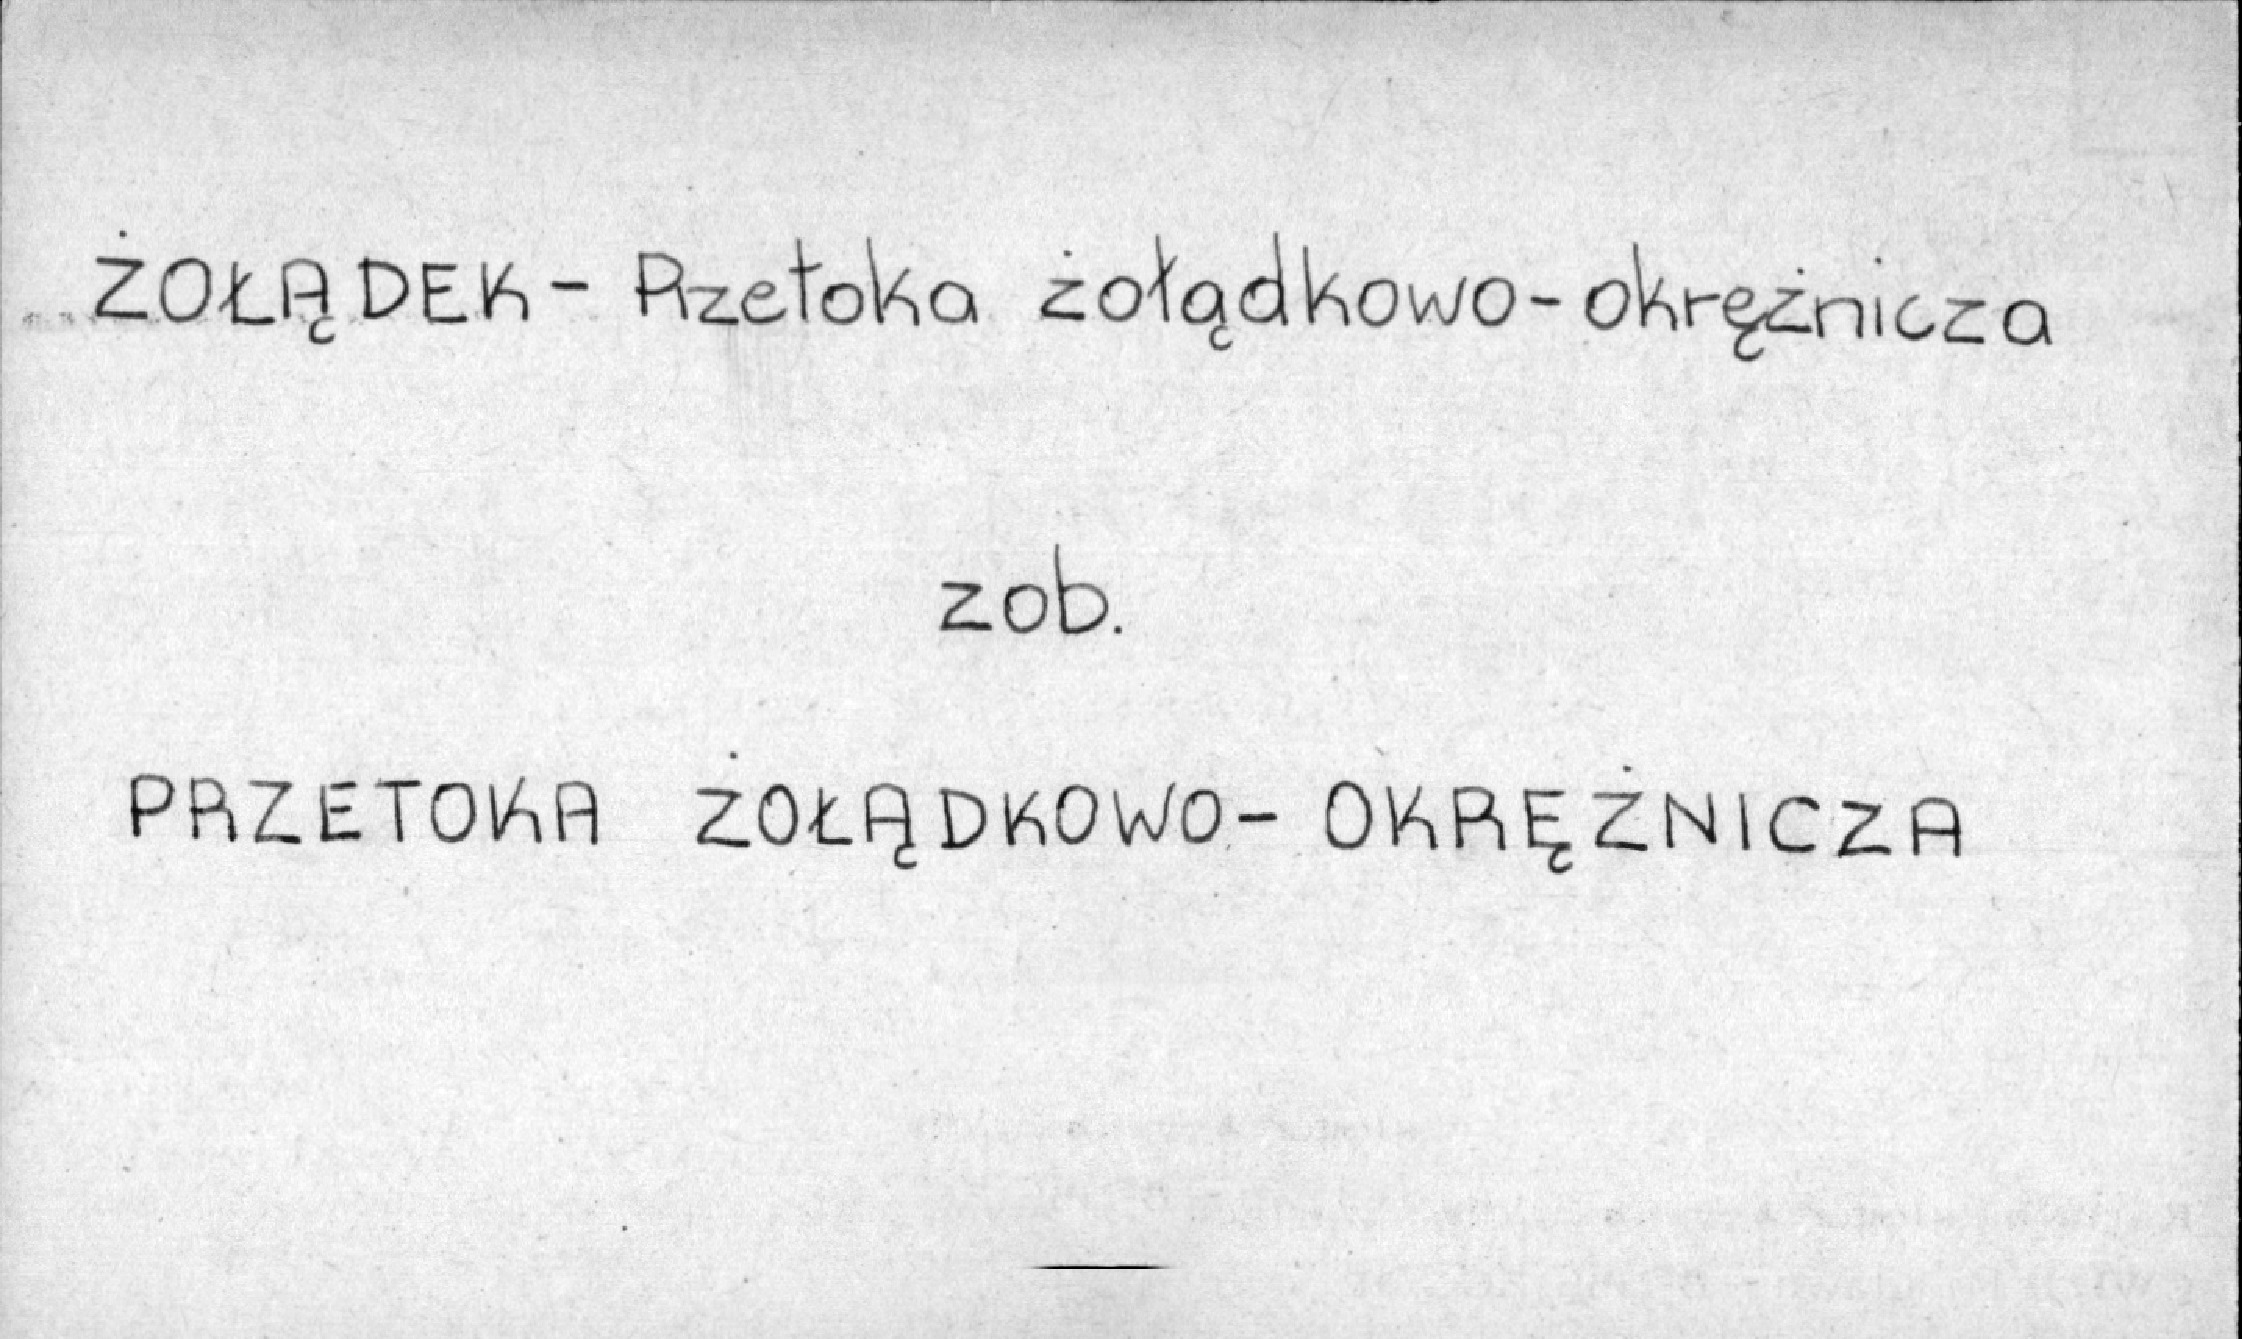 ŻOŁĄDEK - Przetoka żołądkowo-okrężnicza
zob.
PRZETOKA ŻOŁĄDKOWO-OKRĘŻNICZA